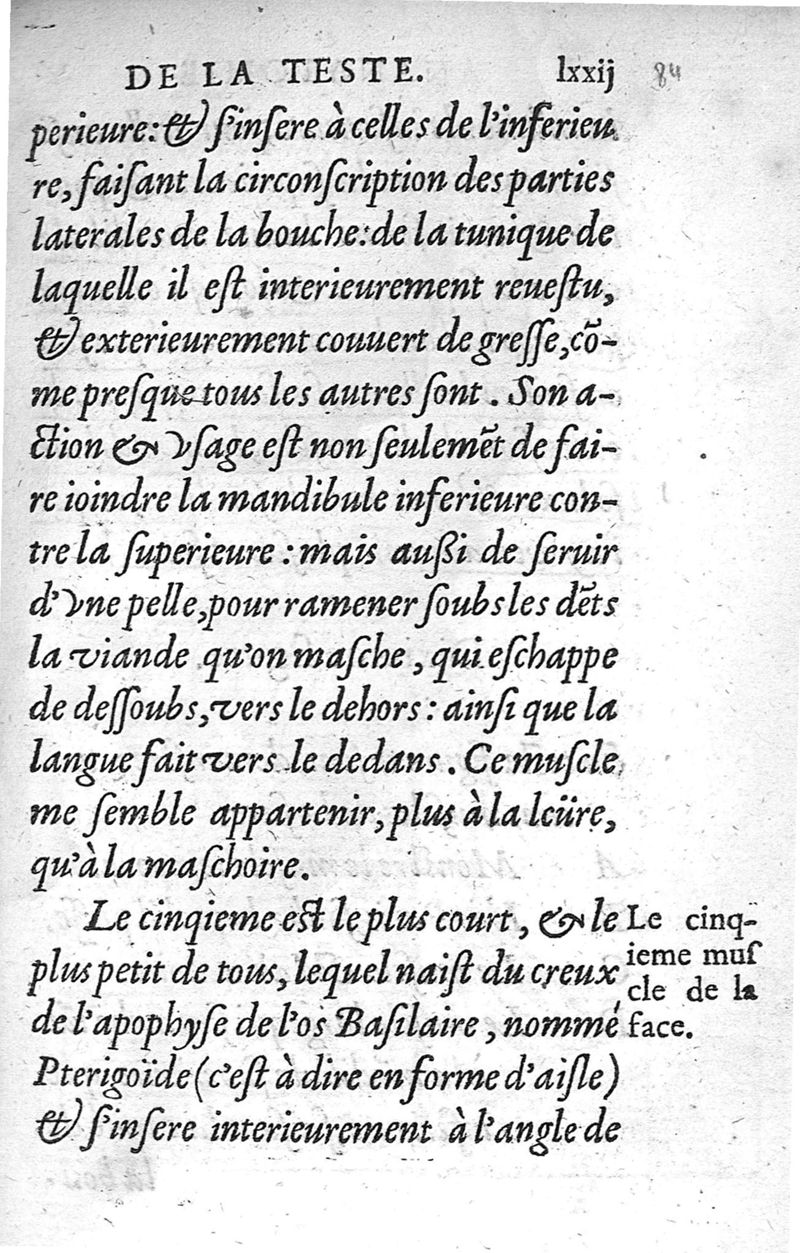 DE LA TESTE. lxxij 84
perieure: & ſ'inſere à celles de l'inferieu
re, faiſant la circonſcription des parties
laterales de la bouche: de la tunique de
laquelle il eſt interieurement reueſtu,
& exterieurement couuert de greſſe, cõ-
me preſque tous les autres ſont. Son a-
ction & vſage eſt non ſeulemẽt de fai-
re ioindre la mandibule inferieure con-
tre la ſuperieure: mais außi de ſeruir
d'vne pelle, pour ramener ſoubs les dẽts
la viande qu'on maſche, qui eſchappe
de deſſoubs, vers le dehors: ainſi que la
langue fait vers le dedans. Ce muſcle
me ſemble appartenir, plus à la leüre,
qu'à la maſchoire.
Le cinqieme eſt le plus court, & le
plus petit de tous, lequel naiſt du creux
de l'apophyſe de l'os Baſilaire, nommé
Pterigoïde (c'eſt à dire en forme d'aiſle)
& ſ'inſere interieurement à l'angle de
Le cinq-
ieme muſ
cle de la
face.